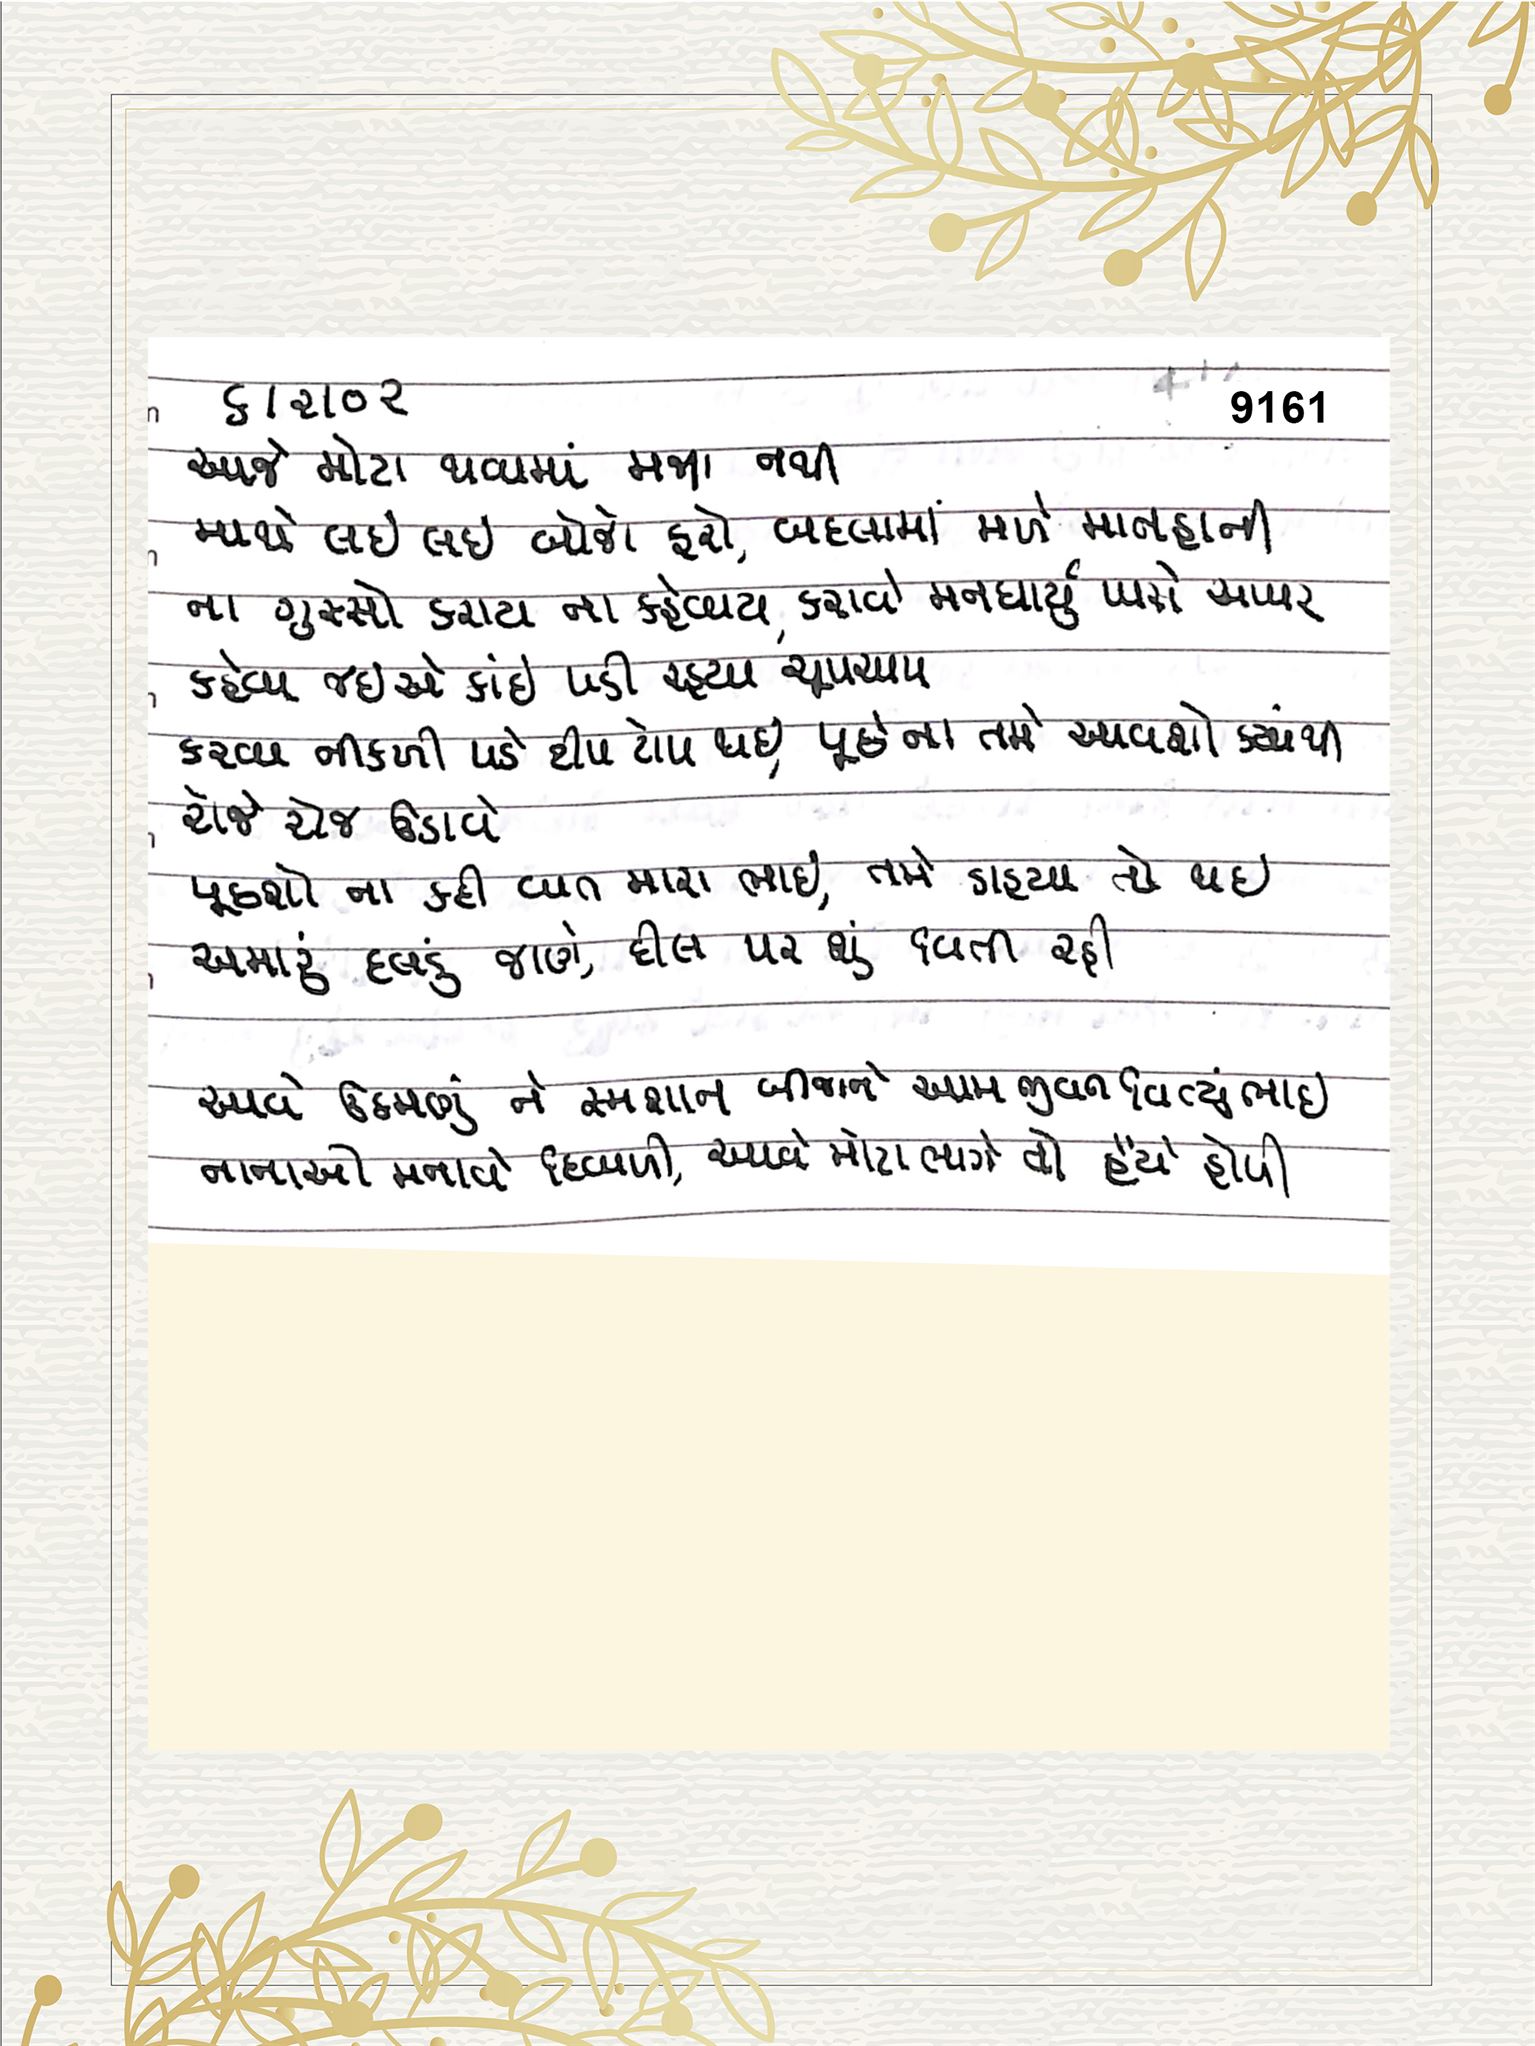 ૬।૨।૦૨
9161
આજે મોટા થવામાં મજા નથી
માથે લઇ લઇ બોજો ફરો, બદલામાં મળે માનહાની
ના ગુસ્સો કરાય ના કહેવાય, કરાવે મનધાર્યું પાસે આપર
કહેવા જઇએ કાંઇ પડી રહ્યા ચૂપચાપ
ફરવા નીકળી પડે ટીપ ટોપ થઇ, પૂછેના તમે આવશો ક્યાંથી
રોજે રોજ ઉડાવે
પૂછશો ના કહી વાત મારા ભાઇ, તમે ડાહ્યા તો થઇ
અમારું દલડું જાણે, દીલ પર શું વિતી રહી
આવે ઉઠમણું ને સ્મશાન બીજાને આમ જીવન વિત્યું ભાઇ
નાનાઓ મનાવે દિવાળી, આવે મોટા ભાગે તો હૈયે હોળી